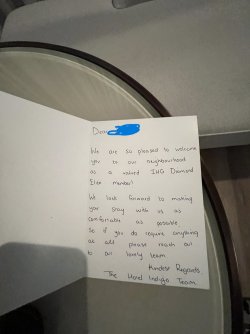 Dear
We are so pleased to welcome
you to our neighbourhood
as a valued IHG Diamond
Elite member!
We look forward to making
your stay with us as
comfortable as possible.
So if you do require anything
at all please reach out
to our lovely team
Kindest Regards
The Hotel Indigo Team